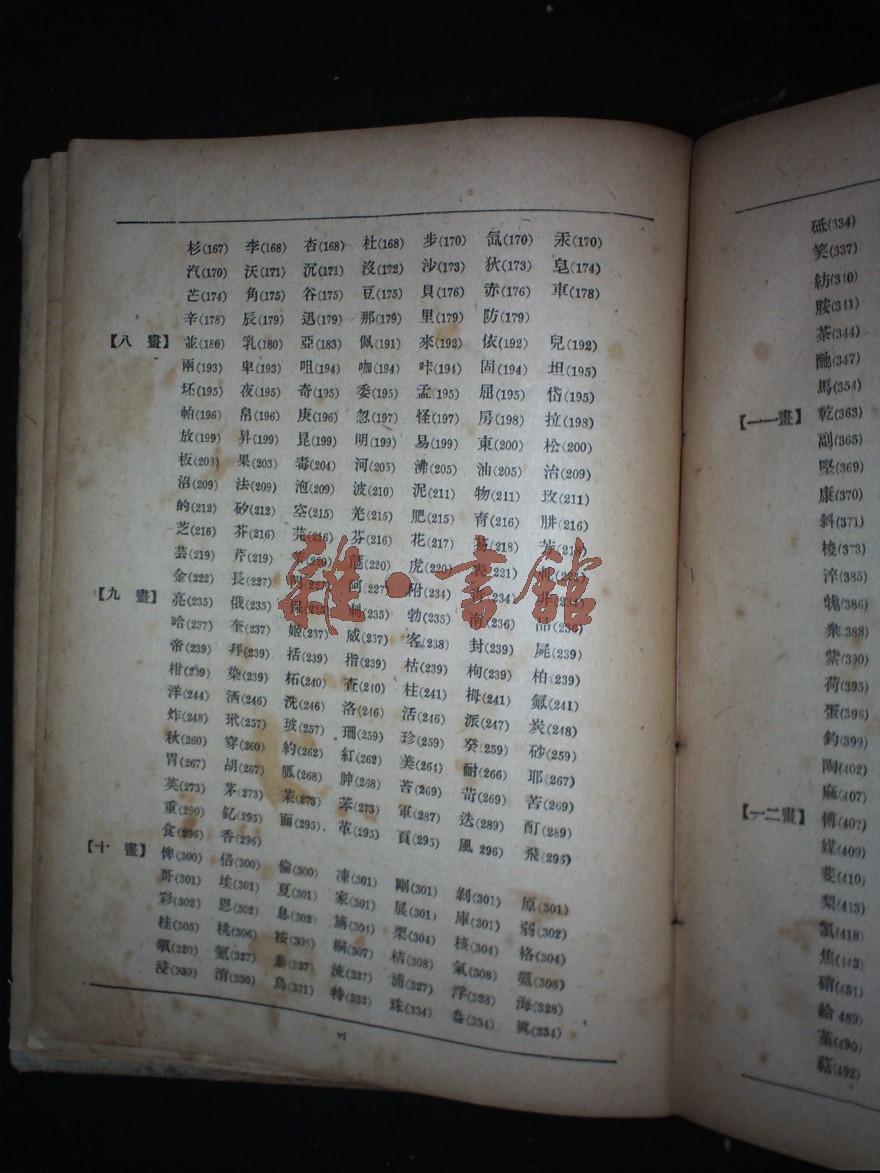 杉(167) 李(168) 杏(168) 杜(168) 步(170) 氙(170) 汞(170)
汽(170) 沃(171) 沉(171) 沒(172) 沙(173) 狄(173) 皂(174)
芒(174) 角(175) 谷(175) 豆(175) 貝(176) 赤(176) 車(178)
辛(178) 辰(179) 迅(179) 那(179) 里(179) 防(179)
【八 畫】 並(180) 乳(180) 亞(183) 佩(191) 來(192) 依(192) 兒(192)
兩(193) 卑(193) 咀(194) 咖(194) 咔(194) 固(194) 坦(195)
坯(195) 夜(195) 奇(195) 委(195) 孟(195) 屈(195) 岱(195)
帕(196) 帛(196) 庚(196) 忽(197) 怪(197) 房(198) 拉(198)
放(199) 昇(199) 昆(199) 明(199) 易(199) 東(200) 松(200)
板(203) 果(203) 毒(204) 河(205) 沸(205) 油(205) 治(209)
沼(209) 法(209) 泡(209) 波(210) 泥(211) 物(211) 玫(211)
的(212) 矽(212) 空(215) 羌(215) 肥(215) 育(216) 胼(216)
芝(216) 芥(216) 芫(216) 芬(216) 花(217)
芸(219) 芹(219) 虎(220)
金(222) 長(227) 阿(227) 附(234)
【九 畫】 亮(235) 俄(235) 保(235) 剌(235) 勃(235) 南(236) 品(236)
哈(237) 奎(237) 姬(237) 威(237) 客(238) 封(239) 屍(239)
帝(239) 拜(239) 括(239) 指(239) 枯(239) 枸(239) 柏(239)
柑(239) 染(239) 柘(240) 查(240) 柱(241) 栂(241) 氟(241)
洋(244) 洒(246) 洗(246) 洛(246) 活(246) 派(247) 炭(248)
炸(248) 玳(257) 玻(257) 珊(259) 珍(259) 癸(259) 砂(259)
秋(260) 穿(260) 約(262) 紅(262) 美(264) 耐(266) 耶(267)
胃(267) 胡(267) 胍(268) 胂(268) 苦(269) 苛(269) 苦(269)
英(273) 茅(273) 茉(273) 苯(273) 軍(287) 迭(289) 酊(289)
重(290) 釔(295) 面(295) 革(295) 頁(295) 風 296) 飛(296)
食(296) 香(296)
【十 畫】 俾(300) 倍(300) 倫(300) 凍(301) 剛(301) 剝(301) 原(301)
哥(301) 埃(301) 夏(301) 家(301) 展(301) 庫(301) 弱(302)
彩(302) 恩(302) 息(302) 栗(304) 核(304) 格(304)
桂(305) 桃(306) 桉(306) 桐(307) 桔(308) 氣(308) 氨(308)
氧(320) 氦(327) 泰(327) 流(327) 浦(327) 浮(328) 海(328)
浸(330) 消(330) 烏(331) 特(332) 珠(334)
砥(334)
笑(337)
紡(340)
胺(341)
茶(344)
酏(347)
馬(354)
【一一畫】 乾(363)
副(365)
堅(369)
康(370)
斜(371)
梭(373)
淬(385)
眾 388)
紫(390)
荷(395)
蛋(396)
釣(399)
陶(402)
麻(407)
【一二畫】 傅(407)
媒(409)
斐(410)
梨(413)
氯(418)
焦(443)
硝(451)
給 489)
菇(492)
雜·書館